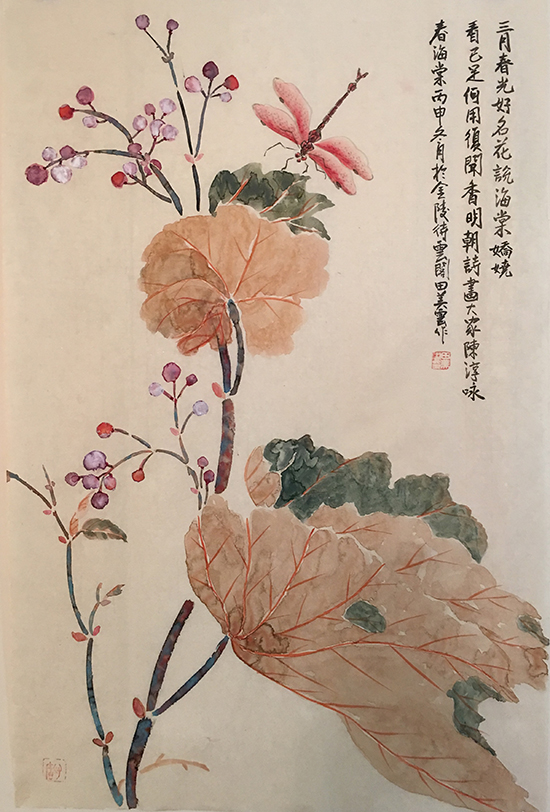 三月春光好名花說海棠嬌嬈
看已足何用復聞香明朝詩畫大家陳淳咏
春海棠丙申冬月於金陵待雲閣田美雲作